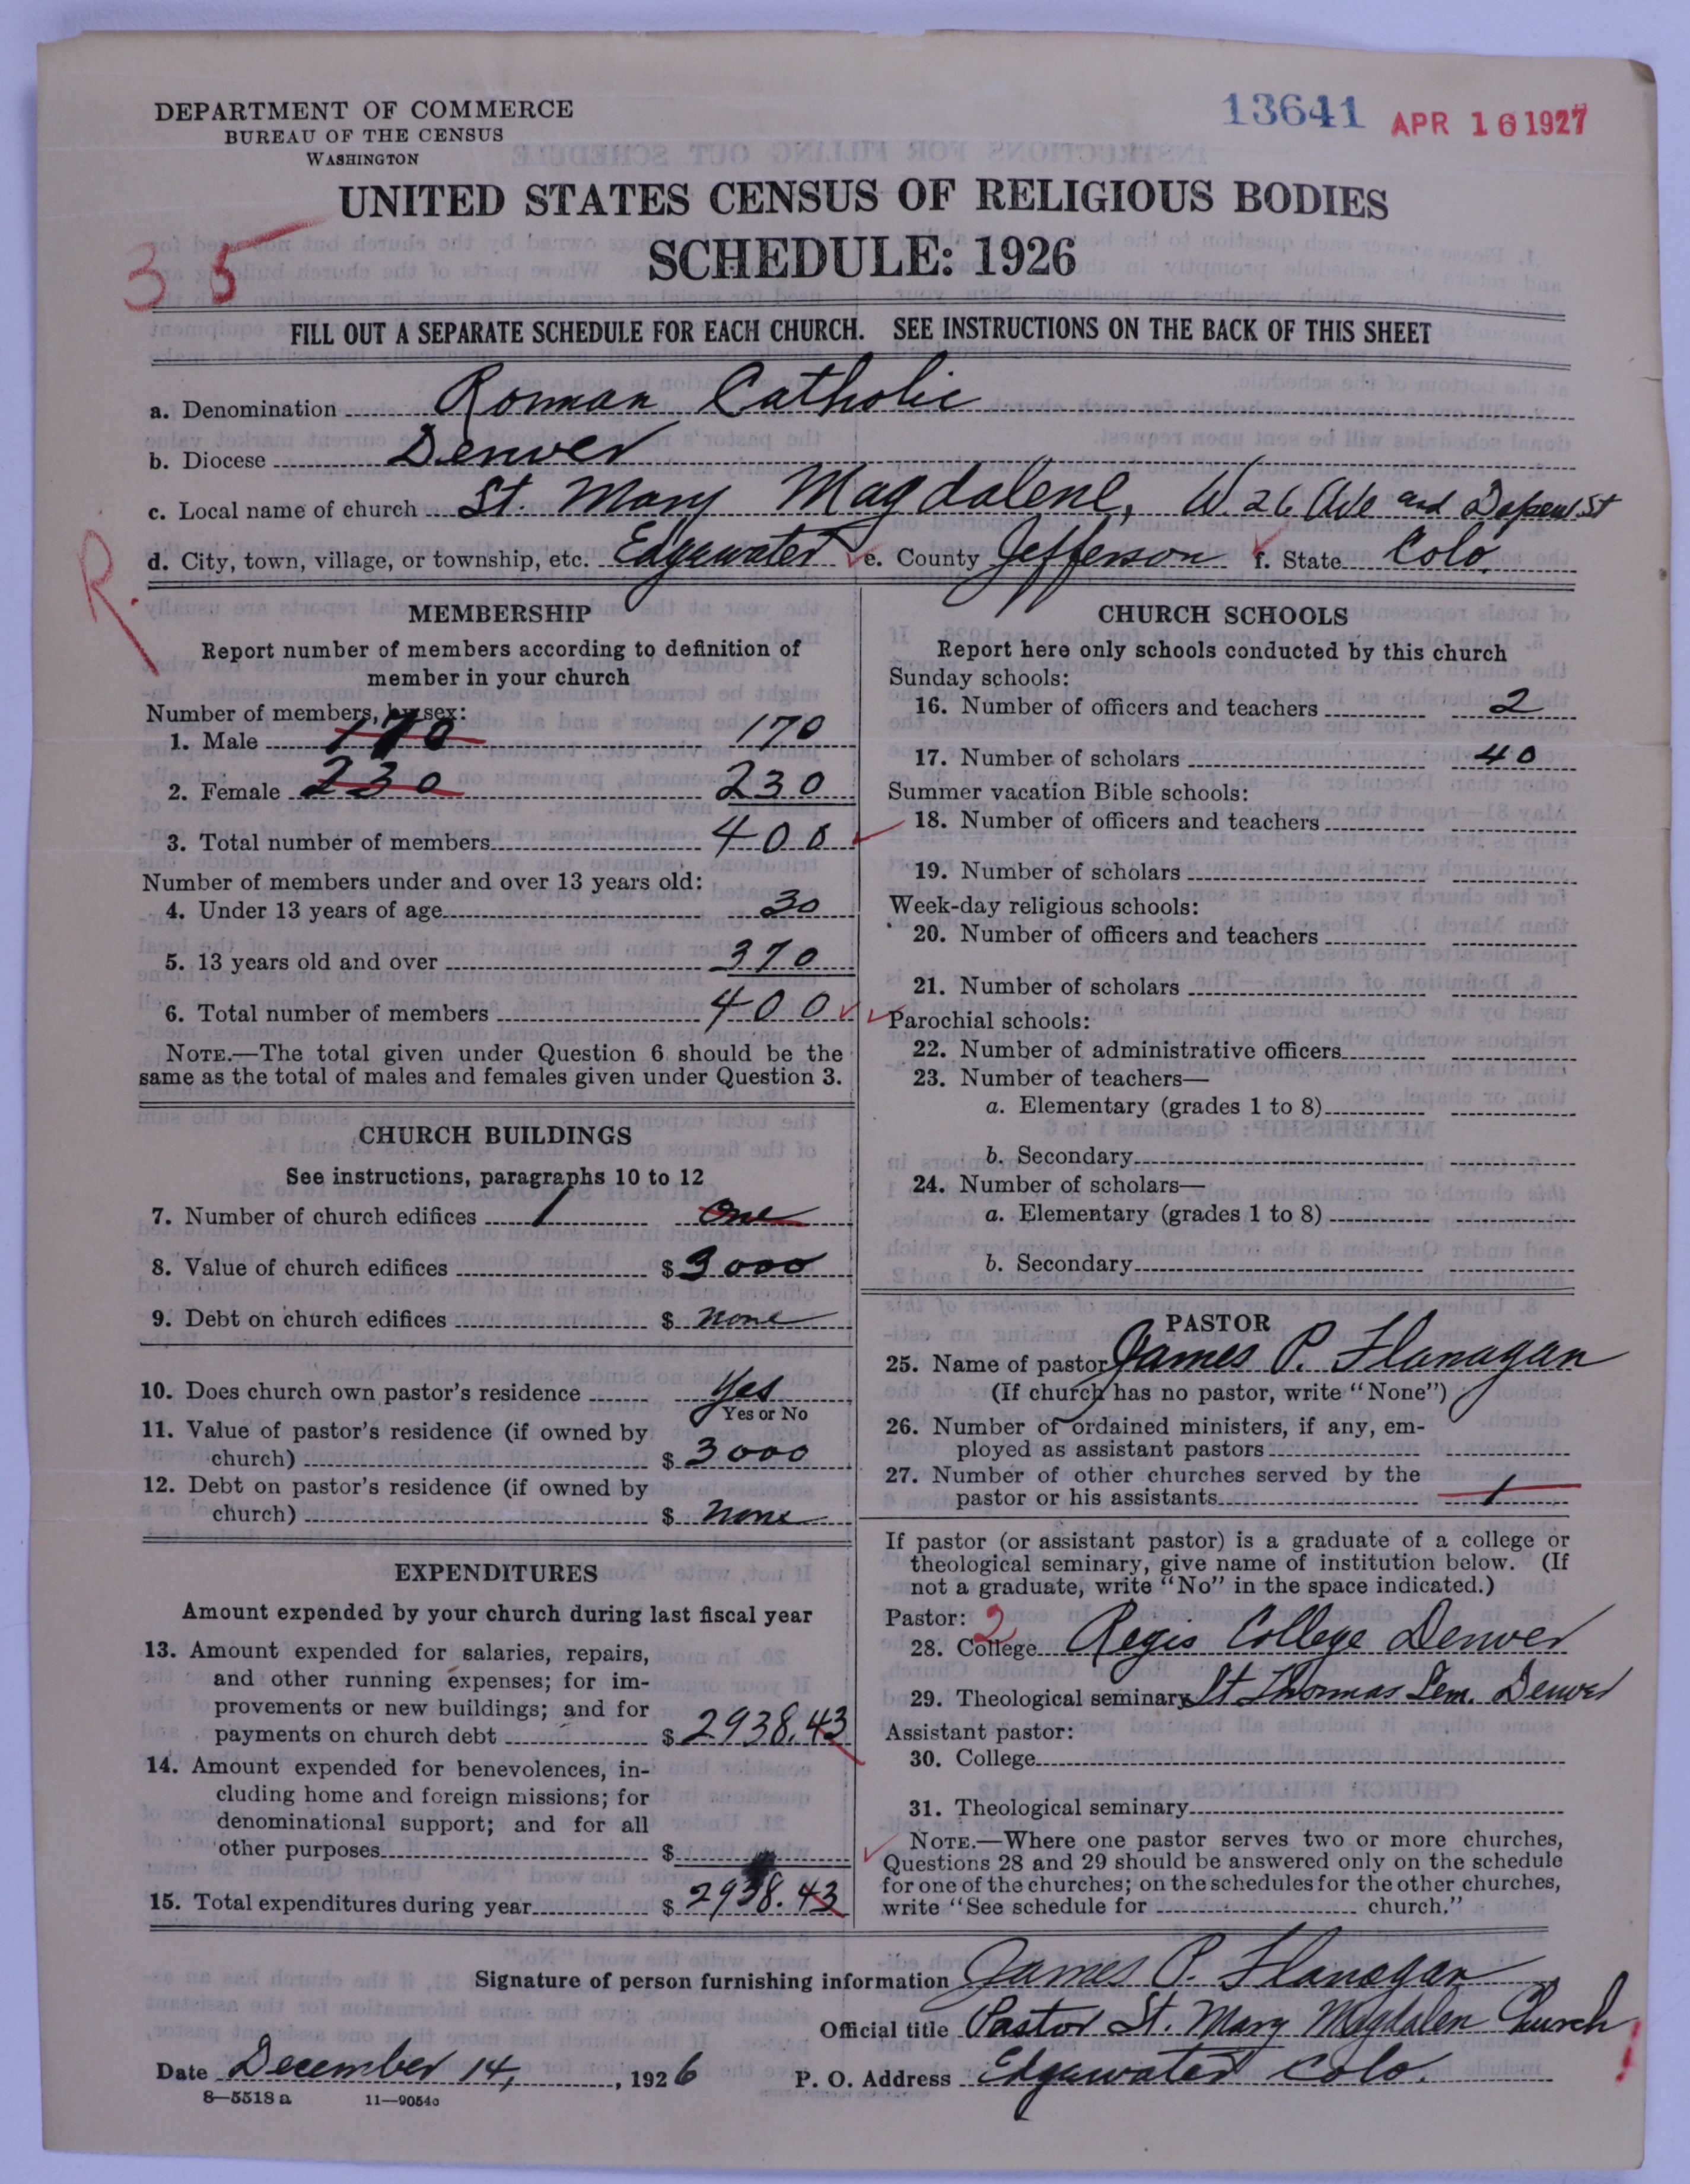 DEPARTMENT OF COMMERCE
BUREAU OF THE CENSUS
WASHINGTON
13641 APR 16 1927
UNITED STATES CENSUS OF RELIGIOUS BODIES
SCHEDULE: 1926
35
FILL OUT A SEPARATE SCHEDULE FOR EACH CHURCH. SEE INSTRUCTIONS ON THE BACK OF THIS SHEET
a. Denomination Roman Catholic
b. Diocese Denver
c. Local name of church St. Mary Magdalene, W. 26 Ave and Depew St
d. City, town, village, or township, etc. Edgewater e. County Jefferson f. State Colo.
R.
MEMBERSHIP
Report number of members according to definition of
member in your church
Number of members, by sex:
1. Male 170 170
2. Female 230 230
3. Total number of members 400
Number of members under and over 13 years old:
4. Under 13 years of age 30
5. 13 years old and over 370
6. Total number of members 400
NOTE.—The total given under Question 6 should be the
same as the total of males and females given under Question 3.
CHURCH BUILDINGS
See instructions, paragraphs 10 to 12
7. Number of church edifices 1 One
8. Value of church edifices $ 3000
9. Debt on church edifices $ none
10. Does church own pastor's residence Yes
Yes or No
11. Value of pastor's residence (if owned by
church) $ 3000
12. Debt on pastor's residence (if owned by
church) $ none
EXPENDITURES
Amount expended by your church during last fiscal year
13. Amount expended for salaries, repairs,
and other running expenses; for im-
provements or new buildings; and for
payments on church debt $ 2938.43
14. Amount expended for benevolences, in-
cluding home and foreign missions; for
denominational support; and for all
other purposes $
15. Total expenditures during year $ 2938.43
CHURCH SCHOOLS
Report here only schools conducted by this church
Sunday schools:
16. Number of officers and teachers 2
17. Number of scholars 40
Summer vacation Bible schools:
18. Number of officers and teachers
19. Number of scholars
Week-day religious schools:
20. Number of officers and teachers
21. Number of scholars
Parochial schools:
22. Number of administrative officers
23. Number of teachers—
a. Elementary (grades 1 to 8)
b. Secondary
24. Number of scholars—
a. Elementary (grades 1 to 8)
b. Secondary
PASTOR
25. Name of pastor James P. Flanagan
(If church has no pastor, write "None")
26. Number of ordained ministers, if any, em-
ployed as assistant pastors
27. Number of other churches served by the
pastor or his assistants 1
If pastor (or assistant pastor) is a graduate of a college or
theological seminary, give name of institution below. (If
not a graduate, write "No" in the space indicated.)
Pastor: 2
28. College Regis College Denver
29. Theological seminary St Thomas Sem. Denver
Assistant pastor:
30. College
31. Theological seminary
NOTE.—Where one pastor serves two or more churches,
Questions 28 and 29 should be answered only on the schedule
for one of the churches; on the schedules for the other churches,
write "See schedule for church."
Signature of person furnishing information James P. Flanagan
Official title Pastor St. Mary Magdalen Church
Date December 14, 1926 P. O. Address Edgewater Colo.
8—5518 a 11—9054o